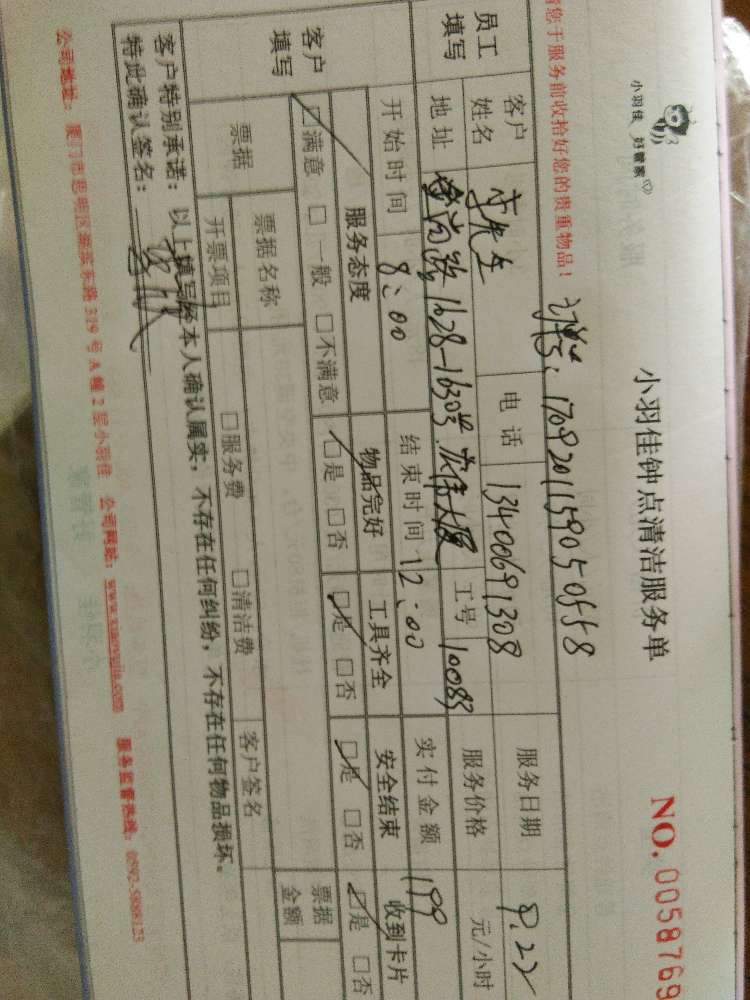 小羽佳 好管家
小羽佳钟点清洁服务单
NO. 0058769
您于服务前收拾好您的贵重物品!
1709201159050558
员工填写
客户姓名 李先生 电话 13400691308 服务日期 9.22
地址 1628-1630号 大厦 工号 10083 服务价格 元/小时
开始时间 8:00 结束时间 12:00 实付金额 199
客户填写
服务态度 物品完好 工具齐全 安全结束 收到卡片
☑满意 □一般 □不满意 ☑是 □否 ☑是 □否 ☑是 □否 ☑是 □否
票据 票据名称 票据金额
开票项目 □服务费 □清洁费 客户签名
客户特别承诺:以上填写经本人确认属实,不存在任何纠纷,不存在任何物品损坏。
特此确认签名:
公司地址:厦门市思明区湖滨东路319号A幢2层小羽佳 公司网站:www.xiaoyujia.com 服务监督热线:0592-5908123